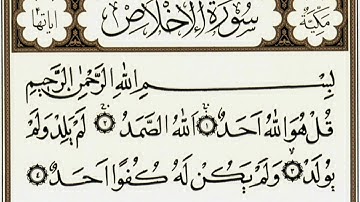 مكية سورة الإخلاص آياتها ٤
بِسْمِ اللهِ الرَّحْمٰنِ الرَّحِيمِ
قُلْ هُوَ اللهُ اَحَدٌ ﴿١﴾ اَللهُ الصَّمَدُ ﴿٢﴾ لَمْ يَلِدْ وَلَمْ
يُولَدْ ﴿٣﴾ وَلَمْ يَكُنْ لَهُ كُفُوًا اَحَدٌ ﴿٤﴾